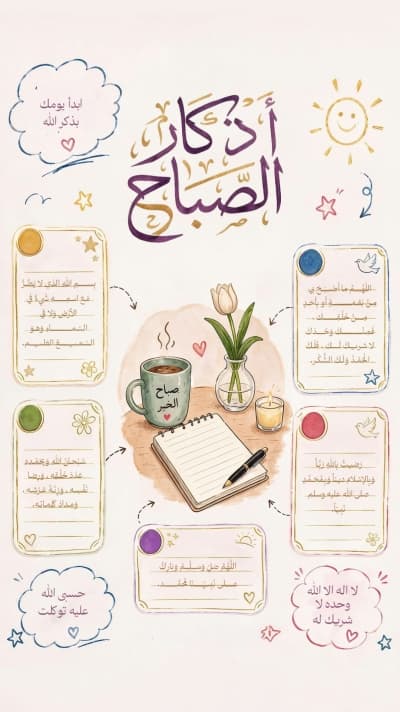 ابدأ يومك
بذكر الله
أذكار
الصباح
بسم الله الذي لا يضر
مع اسمه شيء في
الأرض ولا في
السماء وهو
السميع العليم.
اللهم ما أصبح بي
من نعمة أو بأحد
من خلقك
فمنك وحدك
لا شريك لك، فلك
الحمد ولك الشكر.
صباح
الخير
سبحان الله وبحمده
عدد خلقه، ورضا
نفسه، وزنة عرشه،
ومداد كلماته.
رضيت بالله ربًا
وبالإسلام دينًا وبمحمد
صلى الله عليه وسلم
نبيًا
اللهم صل وسلم وبارك
على نبينا محمد.
حسبي الله
عليه توكلت
لا اله الا الله
وحده لا
شريك له